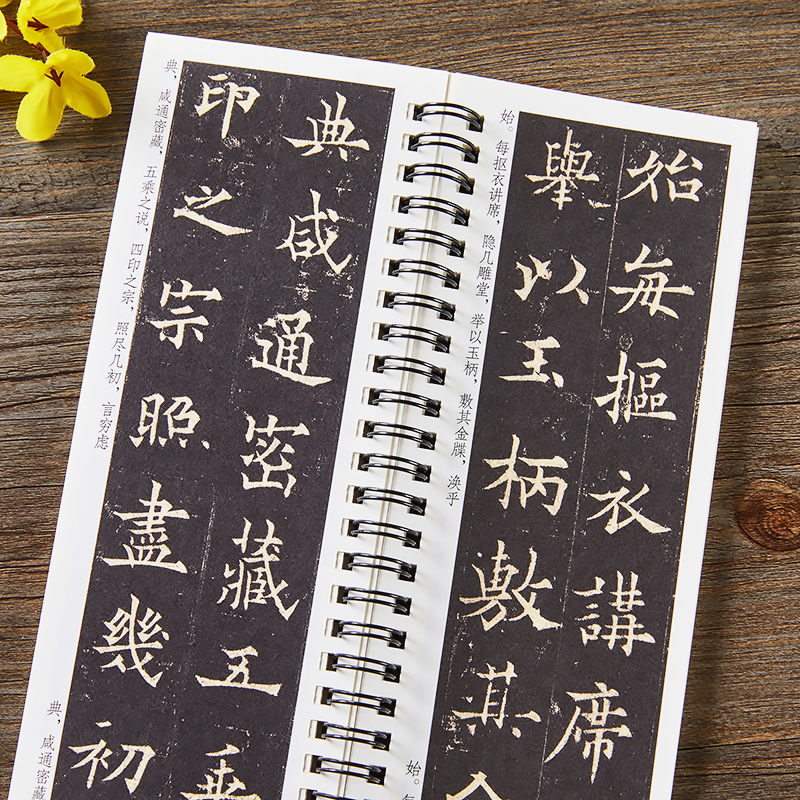 典咸通密藏五乘
印之宗照盡幾初
典，咸通密藏，五乘之说，四印之宗，照尽几初，言穷虑
典，咸通密藏
始每摳衣講席
舉以玉柄敷其
始。每抠衣讲席，隐几雕堂，举以玉柄，敷其金牒，涣乎
始。